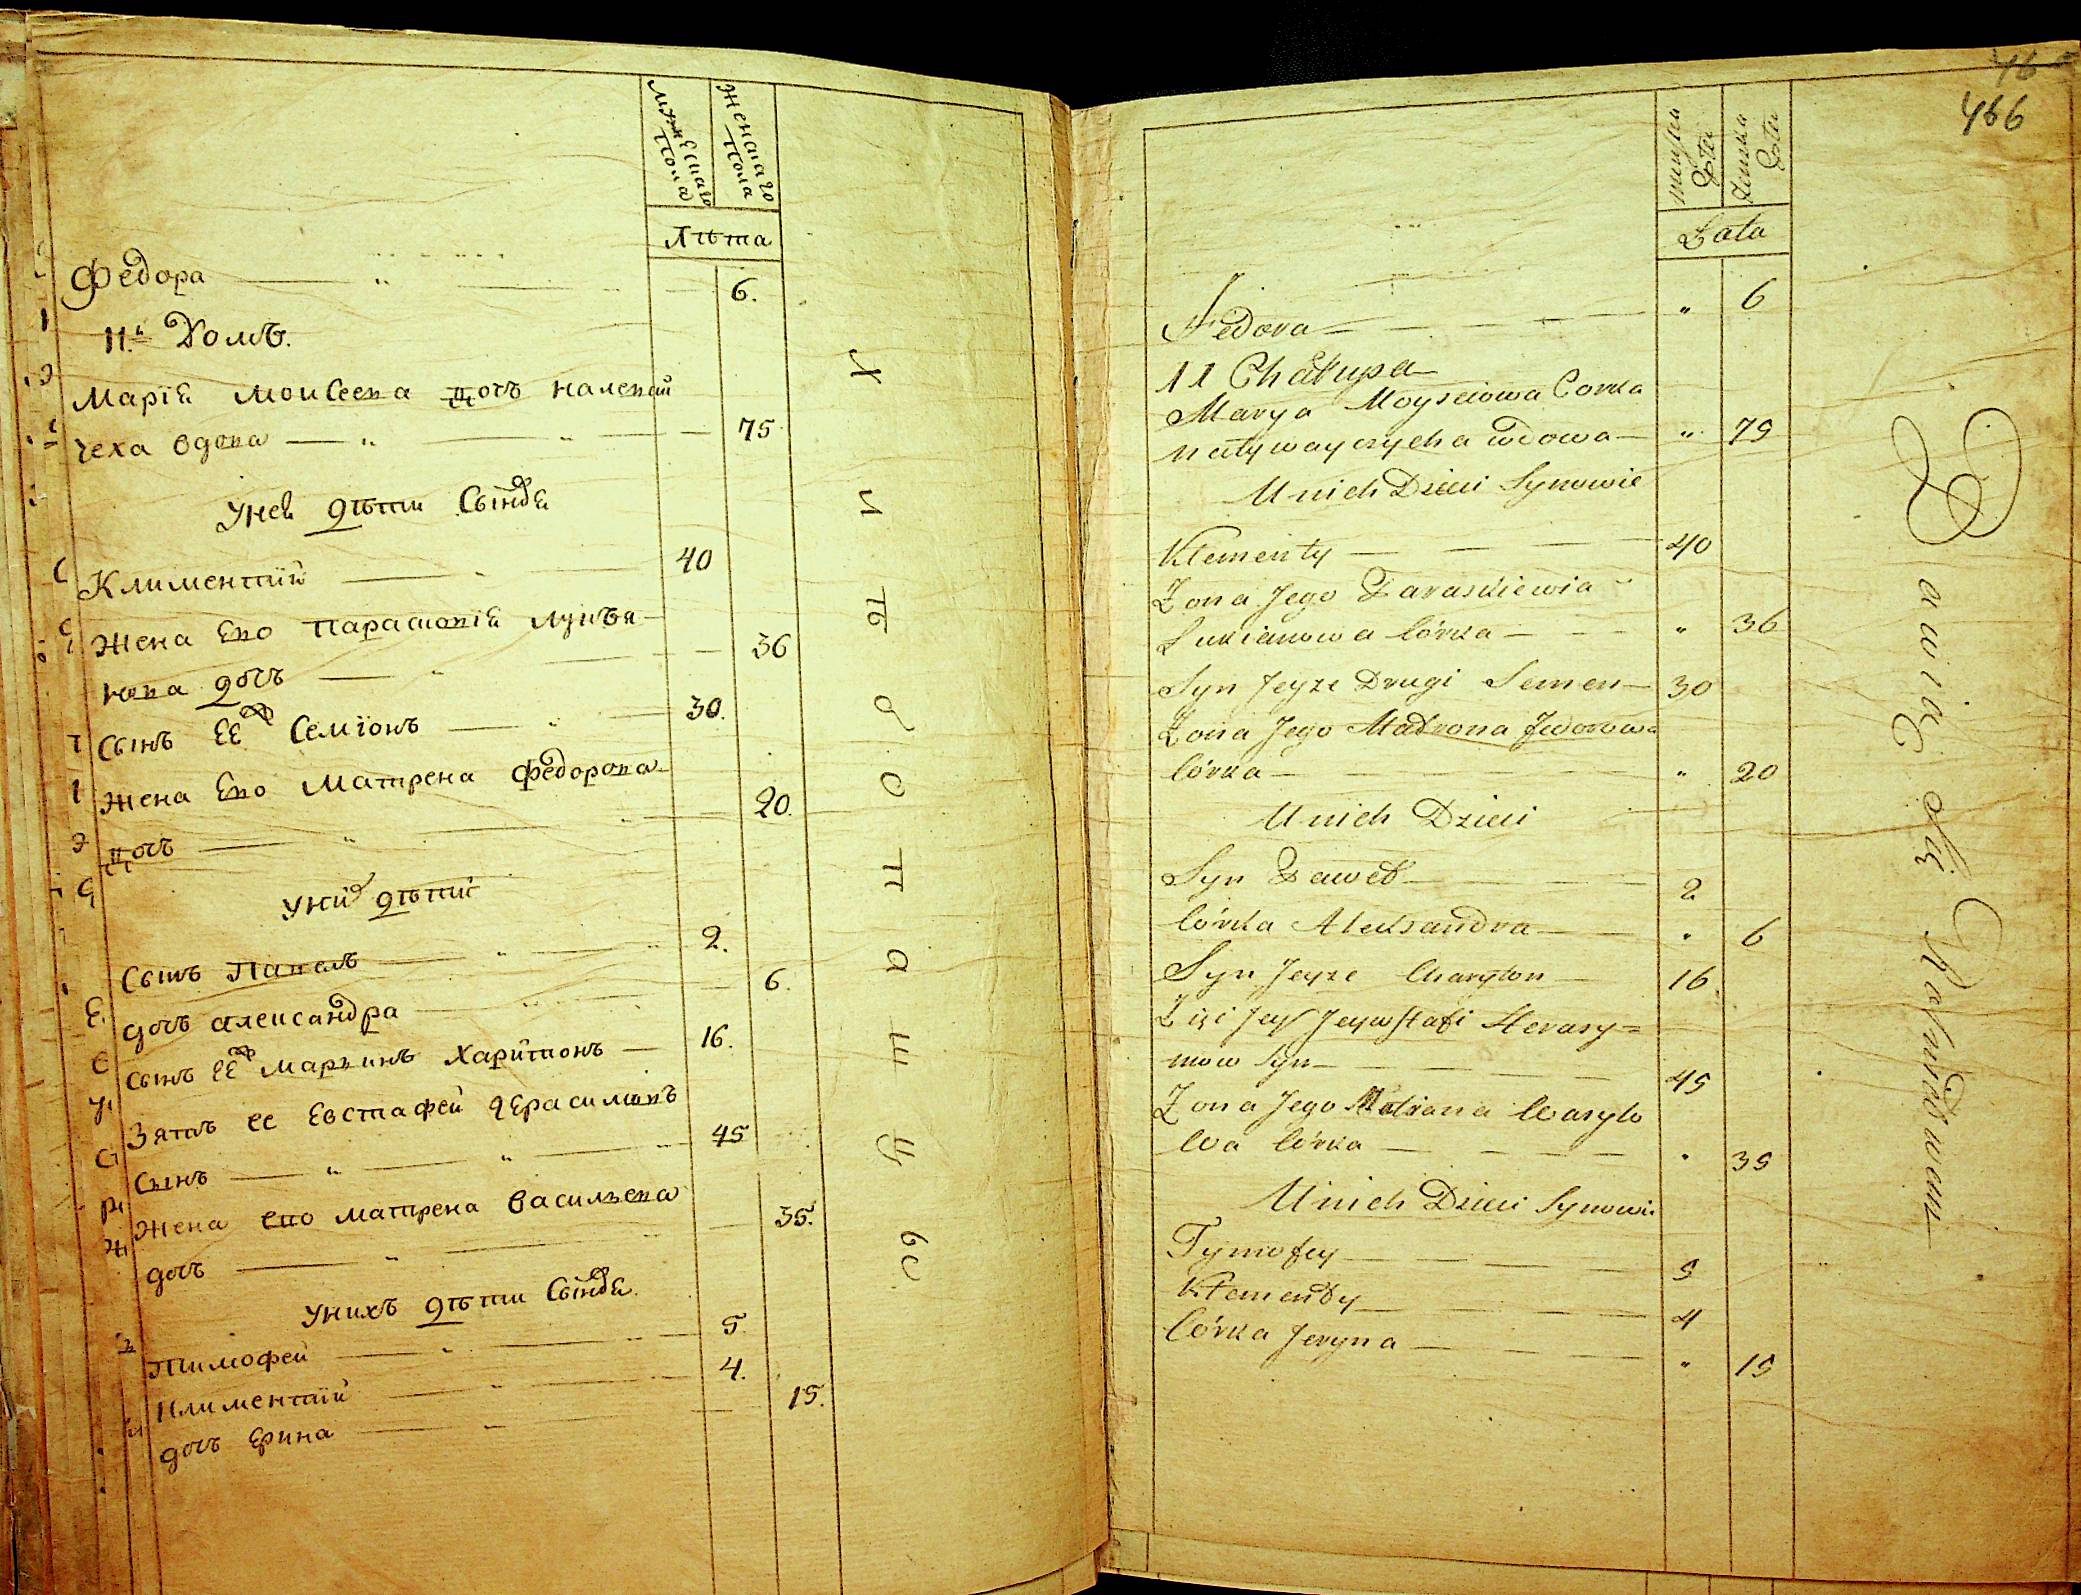 Мужескаго пола
Женскаго пола
Лѣта
Федора — „ — 6.
11.й Домъ.
Марiя Моисеева дочь Наливай
чеха вдова — „ — „ — 75
Унея дѣти Сыновя
Климентiй — 40
Жена Его Параскевiя Лукья-
нова дочь — „ — 36
Сынъ ЕЕ Семiонъ — „ — 30.
Жена Его Матрена Федорова
дочь — „ — „ — 20.
Унихъ дѣти
Сынъ Павелъ — „ — 2.
дочъ александра — 6.
Сынъ ЕЕ Марьинъ Харитонъ — 16.
Зять ее Евстафей Герасимовъ
Сынъ — „ — „ — 45
Жена его матрена Васильева
дочъ — „ — 35.
Унихъ дѣти Сыновя
Тимофей — „ — 5
Климентiй — „ — 4.
дочъ Ерина — „ — 15.
466
męska płeć
żenska płeć
Lata
Fedora — „ 6
11 Chałupa
Marya Moyseiowa Corka
Naływayczycha wdowa — „ 75
U nich Dzieci Synowie
Klementy — 40
Zona Jego Paraskiewia
Łukianowa Córka — „ 36
Syn Jeyze Drugi Semen — 30
Zona Jego Matrona Fedorowa
Córka — „ 20
U nich Dzieci
Syn Paweł — 2
Córka Aleksandra — „ 6
Syn Jeyze Charyton — 16
Zięć Jey Jewstafi Herasy=
mow Syn — 45
Zona Jego Matrona Wasylo
wa Córka — „ 35
U nich Dzieci Synowie
Tymofey — 5
Klementy — 4
Córka Jeryna — „ 15